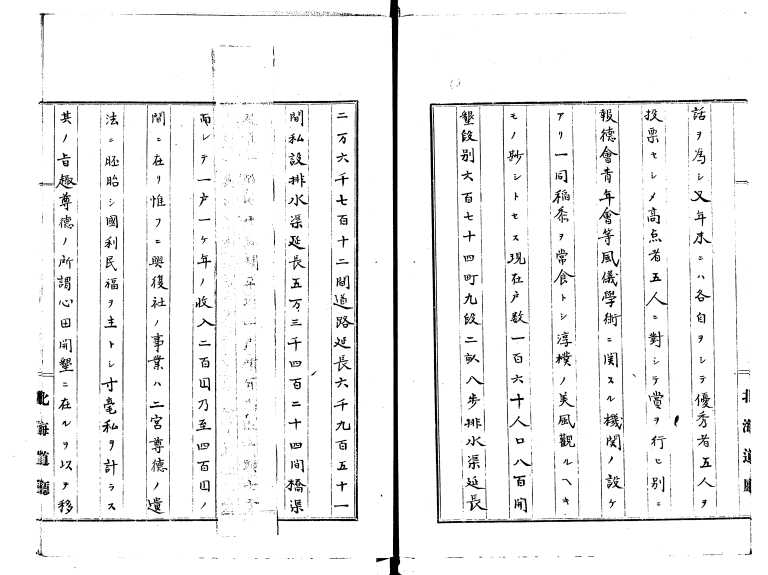 話ヲ為シ又年末ニハ各自ヲシテ優秀者五人ヲ
投票セシメ高点者五人ニ對シテ賞ヲ行ヒ別ニ
報德會青年會等風儀學術ニ関スル機関ノ設ケ
アリ一同稲黍ヲ常食トシ淳樸ノ美風觀ルヘキ
モノ尠シトセス現在戸数一百六十人口八百開
墾段別六百七十四町九段二畝八歩排水渠延長
北海道廳
二万六千七百十二間道路延長六千九百五十一
間私設排水渠延長五万三千四百二十四間橋渠
而シテ一戸一ケ年ノ收入二百円乃至四百円ノ
間ニ在リ惟フニ興復社ノ事業ハ二宮尊德ノ遺
法ニ胚胎シ國利民福ヲ主トシ寸毫私ヲ計ラス
其ノ旨趣尊德ノ所謂心田開墾ニ在ルヲ以テ移
北海道廳